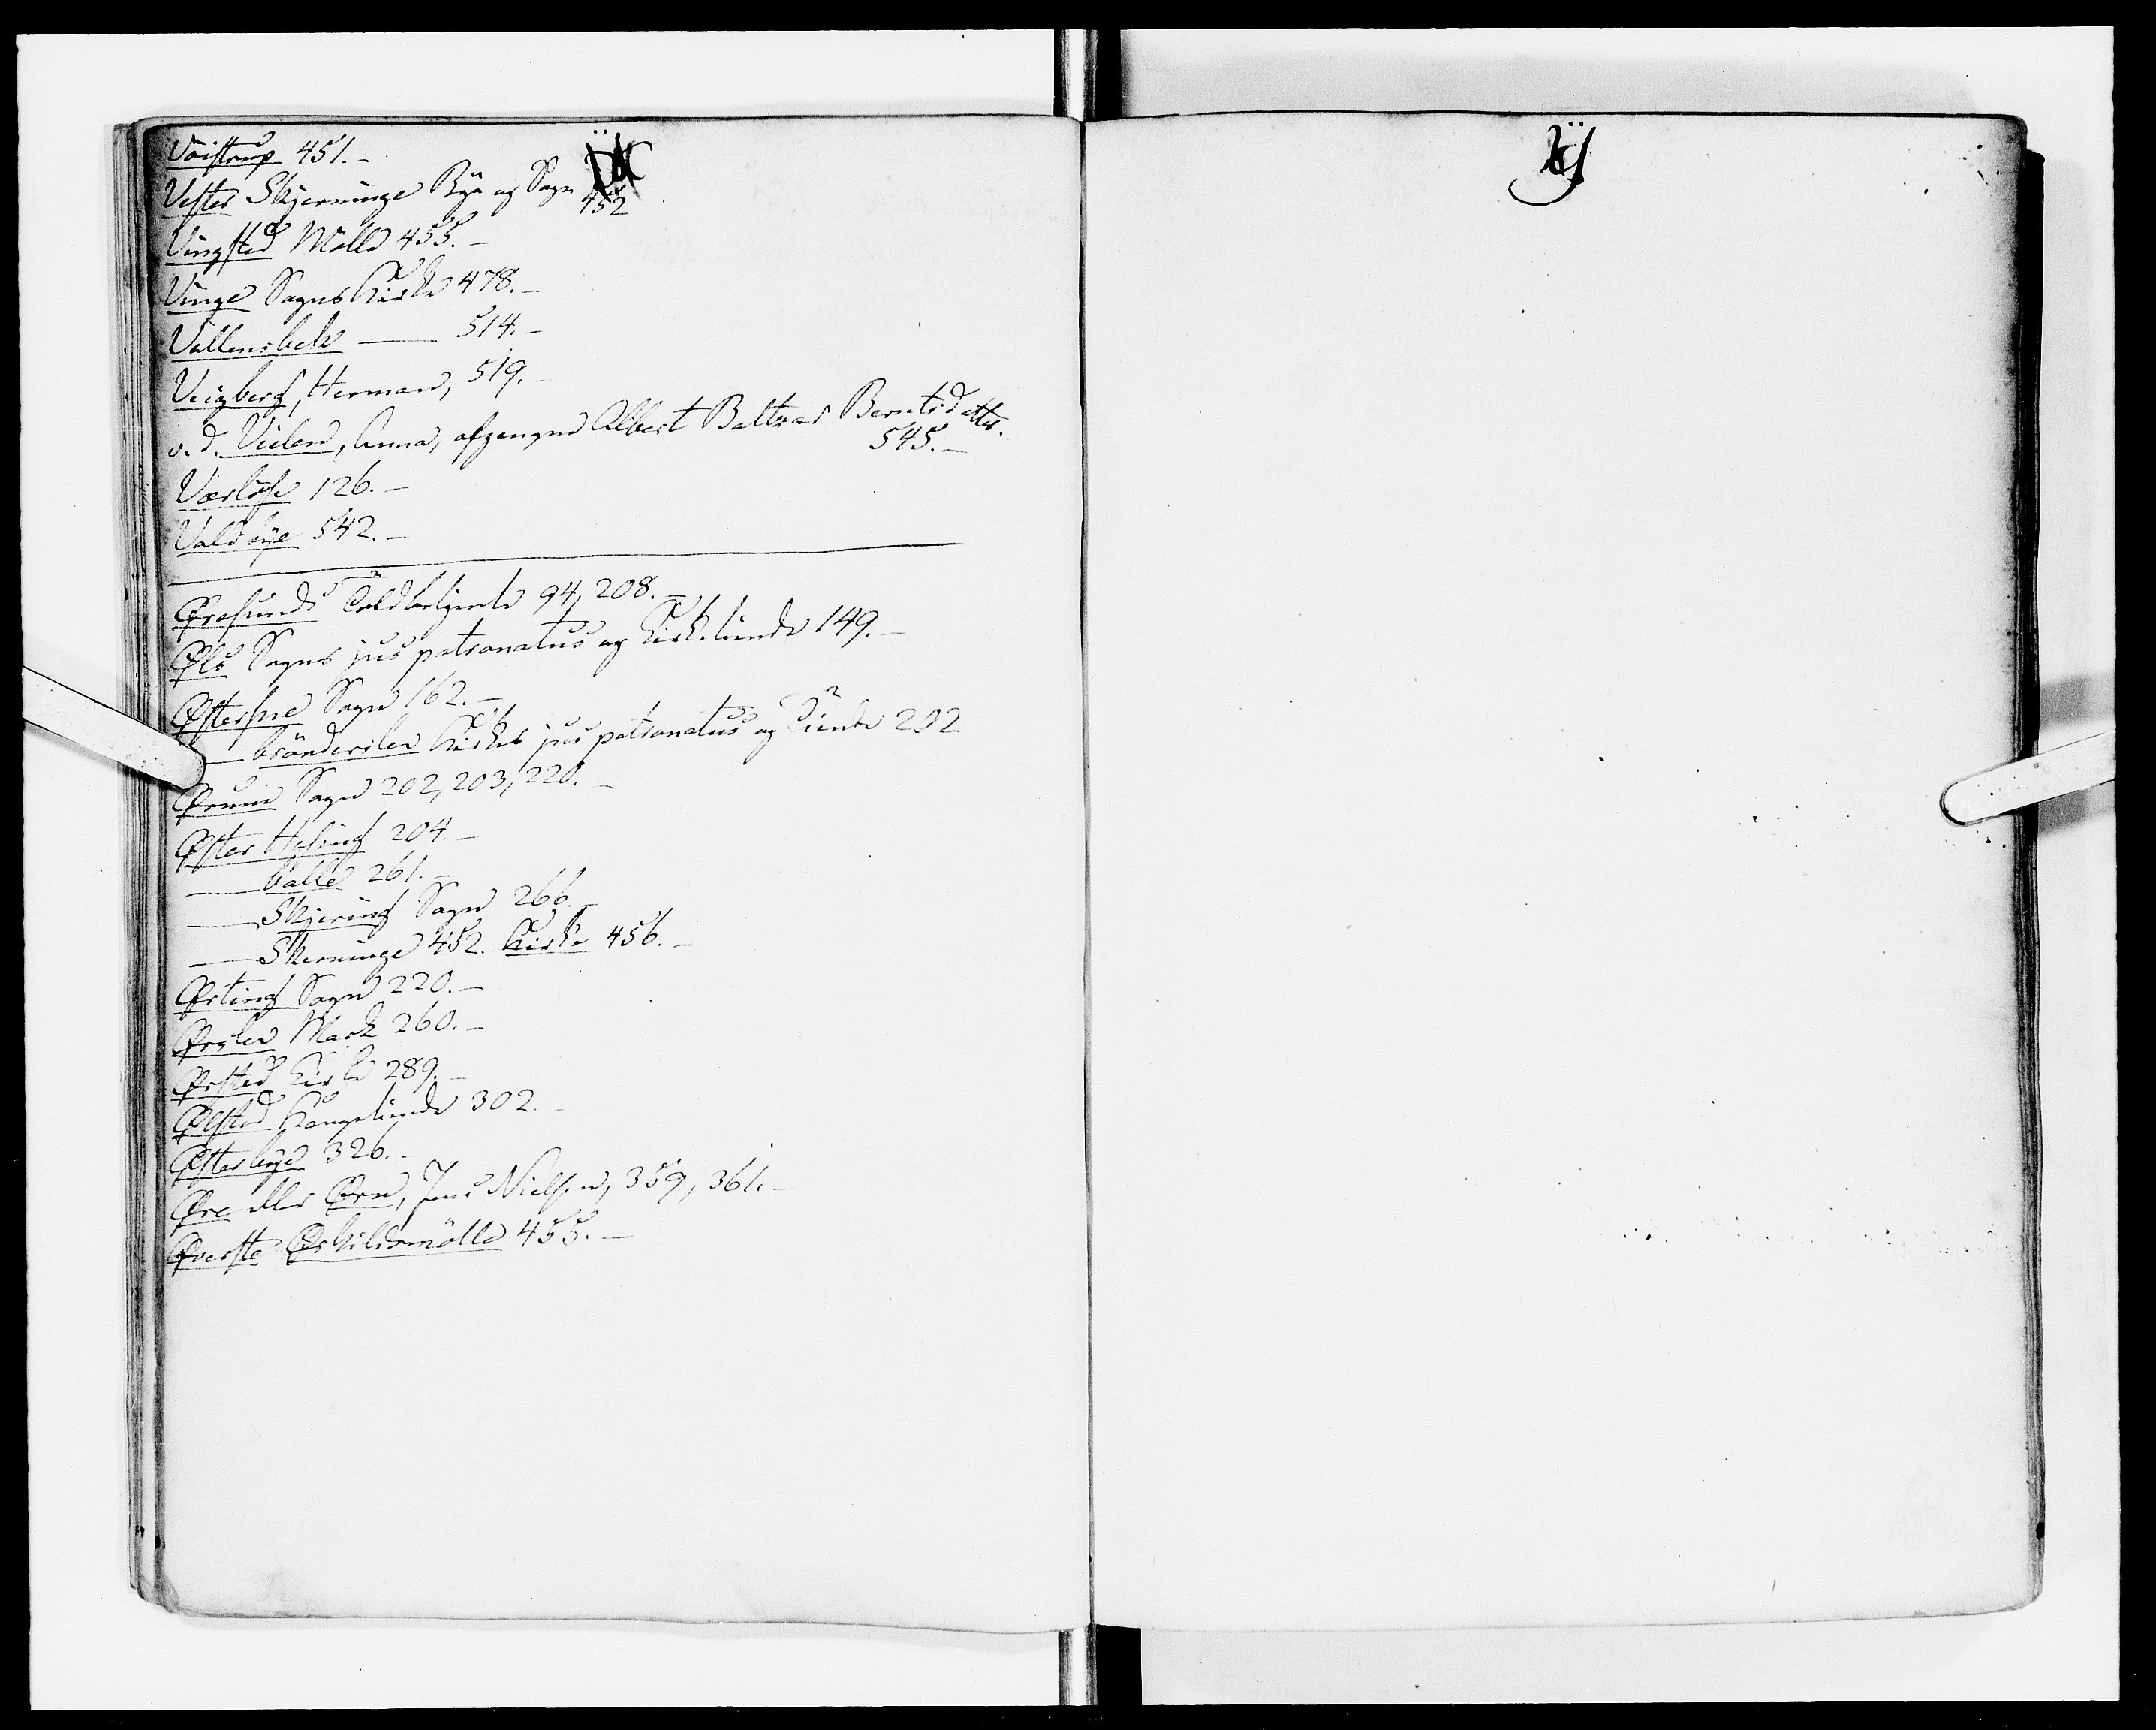 Vöistrup 451.-
Vester Skjerninge Bye og Sogn 452
Vingsted Mölle 455.-
Vinge Sogns Kirke 478.-
Vallensbek —— 514.-
Veigberg, Herman, 519.-
v. d. Vielen, Anna, afgangne Albert Baltzar Berntsdatter.
545.-
Værlöse 126.-
Valdbÿe 542.-
Øresunds Toldbetjente 94, 208.-
Øls Sogns jus patronatus og Kirketiende 149.-
Østersne Sogn 162.-
—— brönderslev Kirkes jus patronatus og Tiende 202
Ørum Sogn 202, 203, 220.-
Øster Hæsing 204.-
—— balle 261.-
—— Skjering Sogn 266.-
—— Skerninge 452. Kirke 456.-
Ørting Sogn 220.-
Ørslev Mark 260.-
Ørsted Kirke 289.-
Ølsted Kongetiende 302.-
Østerbÿe 326.-
Øre eller Ørn, Jens Nielsen, 359, 361.-
Øverste Øskildsmölle 455.-
Ÿ